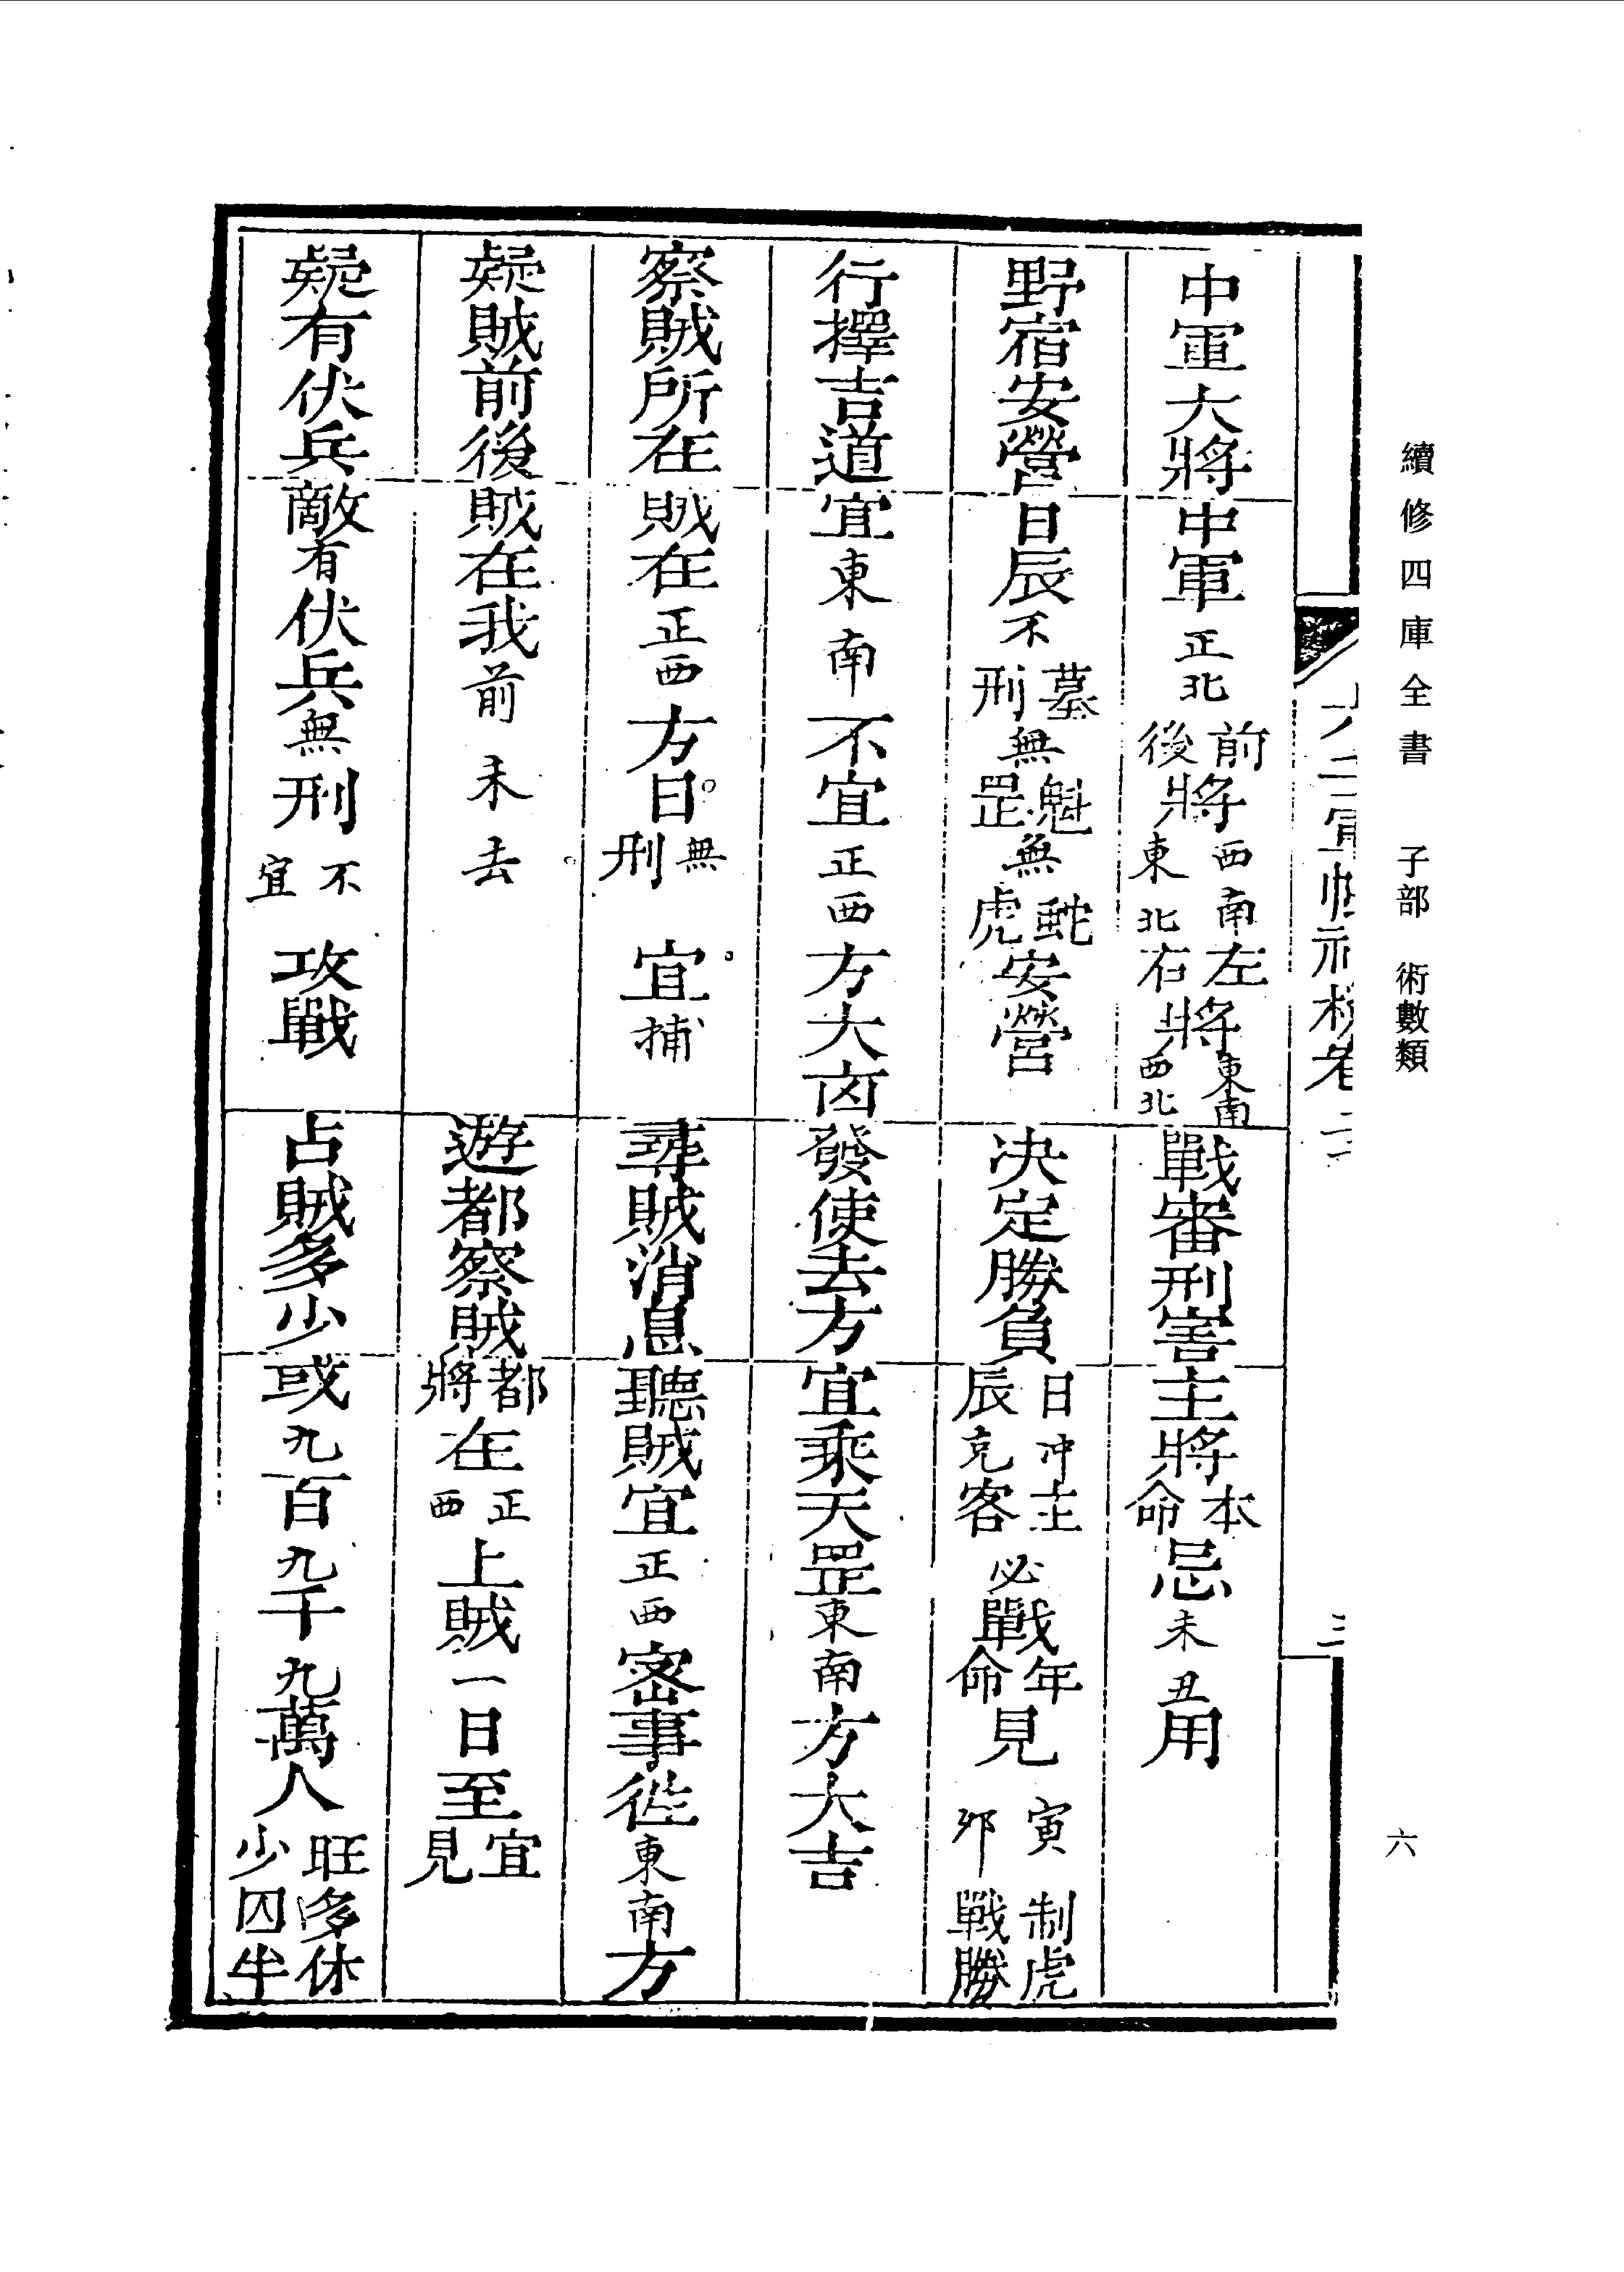 續修四庫全書　子部　術數類
六
三
中軍大將　中軍正北前後將西南東北左右將東南西北　戰審刑害　主將本命忌未丑用
野宿安營　日辰不墓刑無魁罡無虵虎安營　决定勝負　日辰冲克主客必戰年命見寅卯制虎戰勝
行擇吉道　宜東南不宜正西方大凶　發使去方　宜乘天罡東南方大吉
察賊所在　賊在正西方日無刑宜捕　尋賊消息　聽賊宜正西密事徃東南方
疑賊前後　賊在我前未去　遊都察賊　都將在正西上賊一日至宜見
疑有伏兵　敵有伏兵無刑不宜攻戰　占賊多少　或九百九千九萬人旺多休少囚半